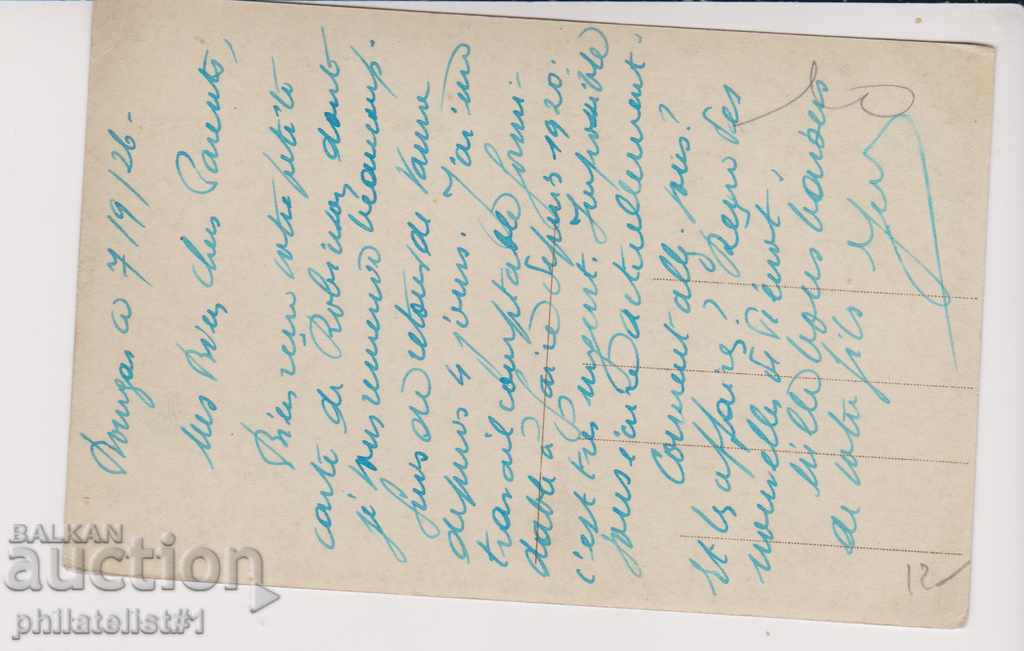 Bourgas a 7/9/26-
Mes Bien chers Parents,
Bien reçu votre petite
carte de Robinson dont
je vous remercie beaucoup.
Suis de retour de Varna
depuis 4 jours. J'ai un
travail comptable formi-
dable à faire depuis 1920.
c'est très urgent. Impossible
vous écrire actuellement.
Comment allez vous?
Et les affaires? Reçu des
nouvelles de Pierrot.
Mille bons baisers
de votre fils
12
BALKAN
auction
philatelist#1